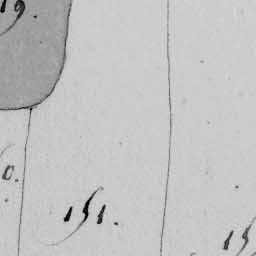 19
0.
151.
15